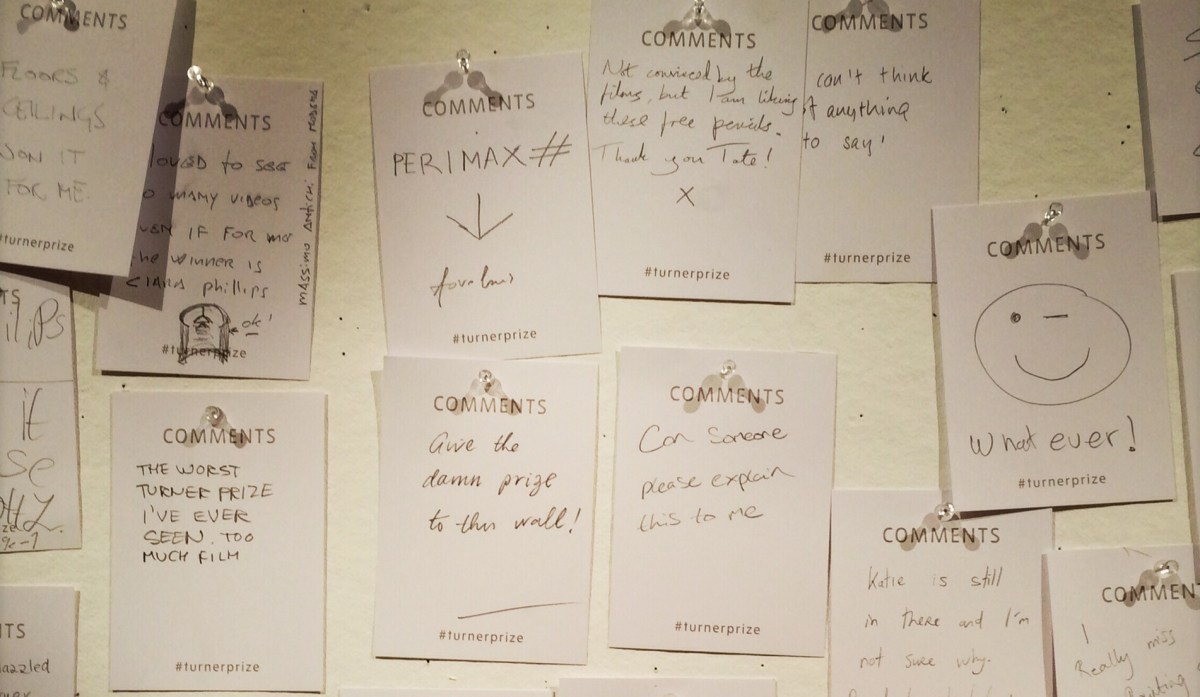 COMMENTS
FLOORS &
CEILINGS
SON IT
FOR ME.
#turnerprize
COMMENTS
LOVED TO SEE
SO MANY VIDEOS
EVEN IF FOR ME
THE WINNER IS
CIARA phillips
ok!
#turnerprize
MASSIMO ANTICHI FROM MODENA
COMMENTS
PERIMAX#
#turnerprize
COMMENTS
Not convinced by the
films, but I am liking
these free pencils.
Thank you Tate!
X
#turnerprize
COMMENTS
can't think
of anything
to say'
#turnerprize
COMMENTS
What ever!
#turnerprize
it
se
COMMENTS
THE WORST
TURNER PRIZE
I'VE EVER
SEEN. TOO
MUCH FILM
#turnerprize
COMMENTS
Give the
damn prize
to this wall!
#turnerprize
COMMENTS
Can Someone
please explain
this to me
#turnerprize
COMMENTS
Katie is still
in there and I'm
not sure why.
COMMEN
I
Really miss
TS
azzled